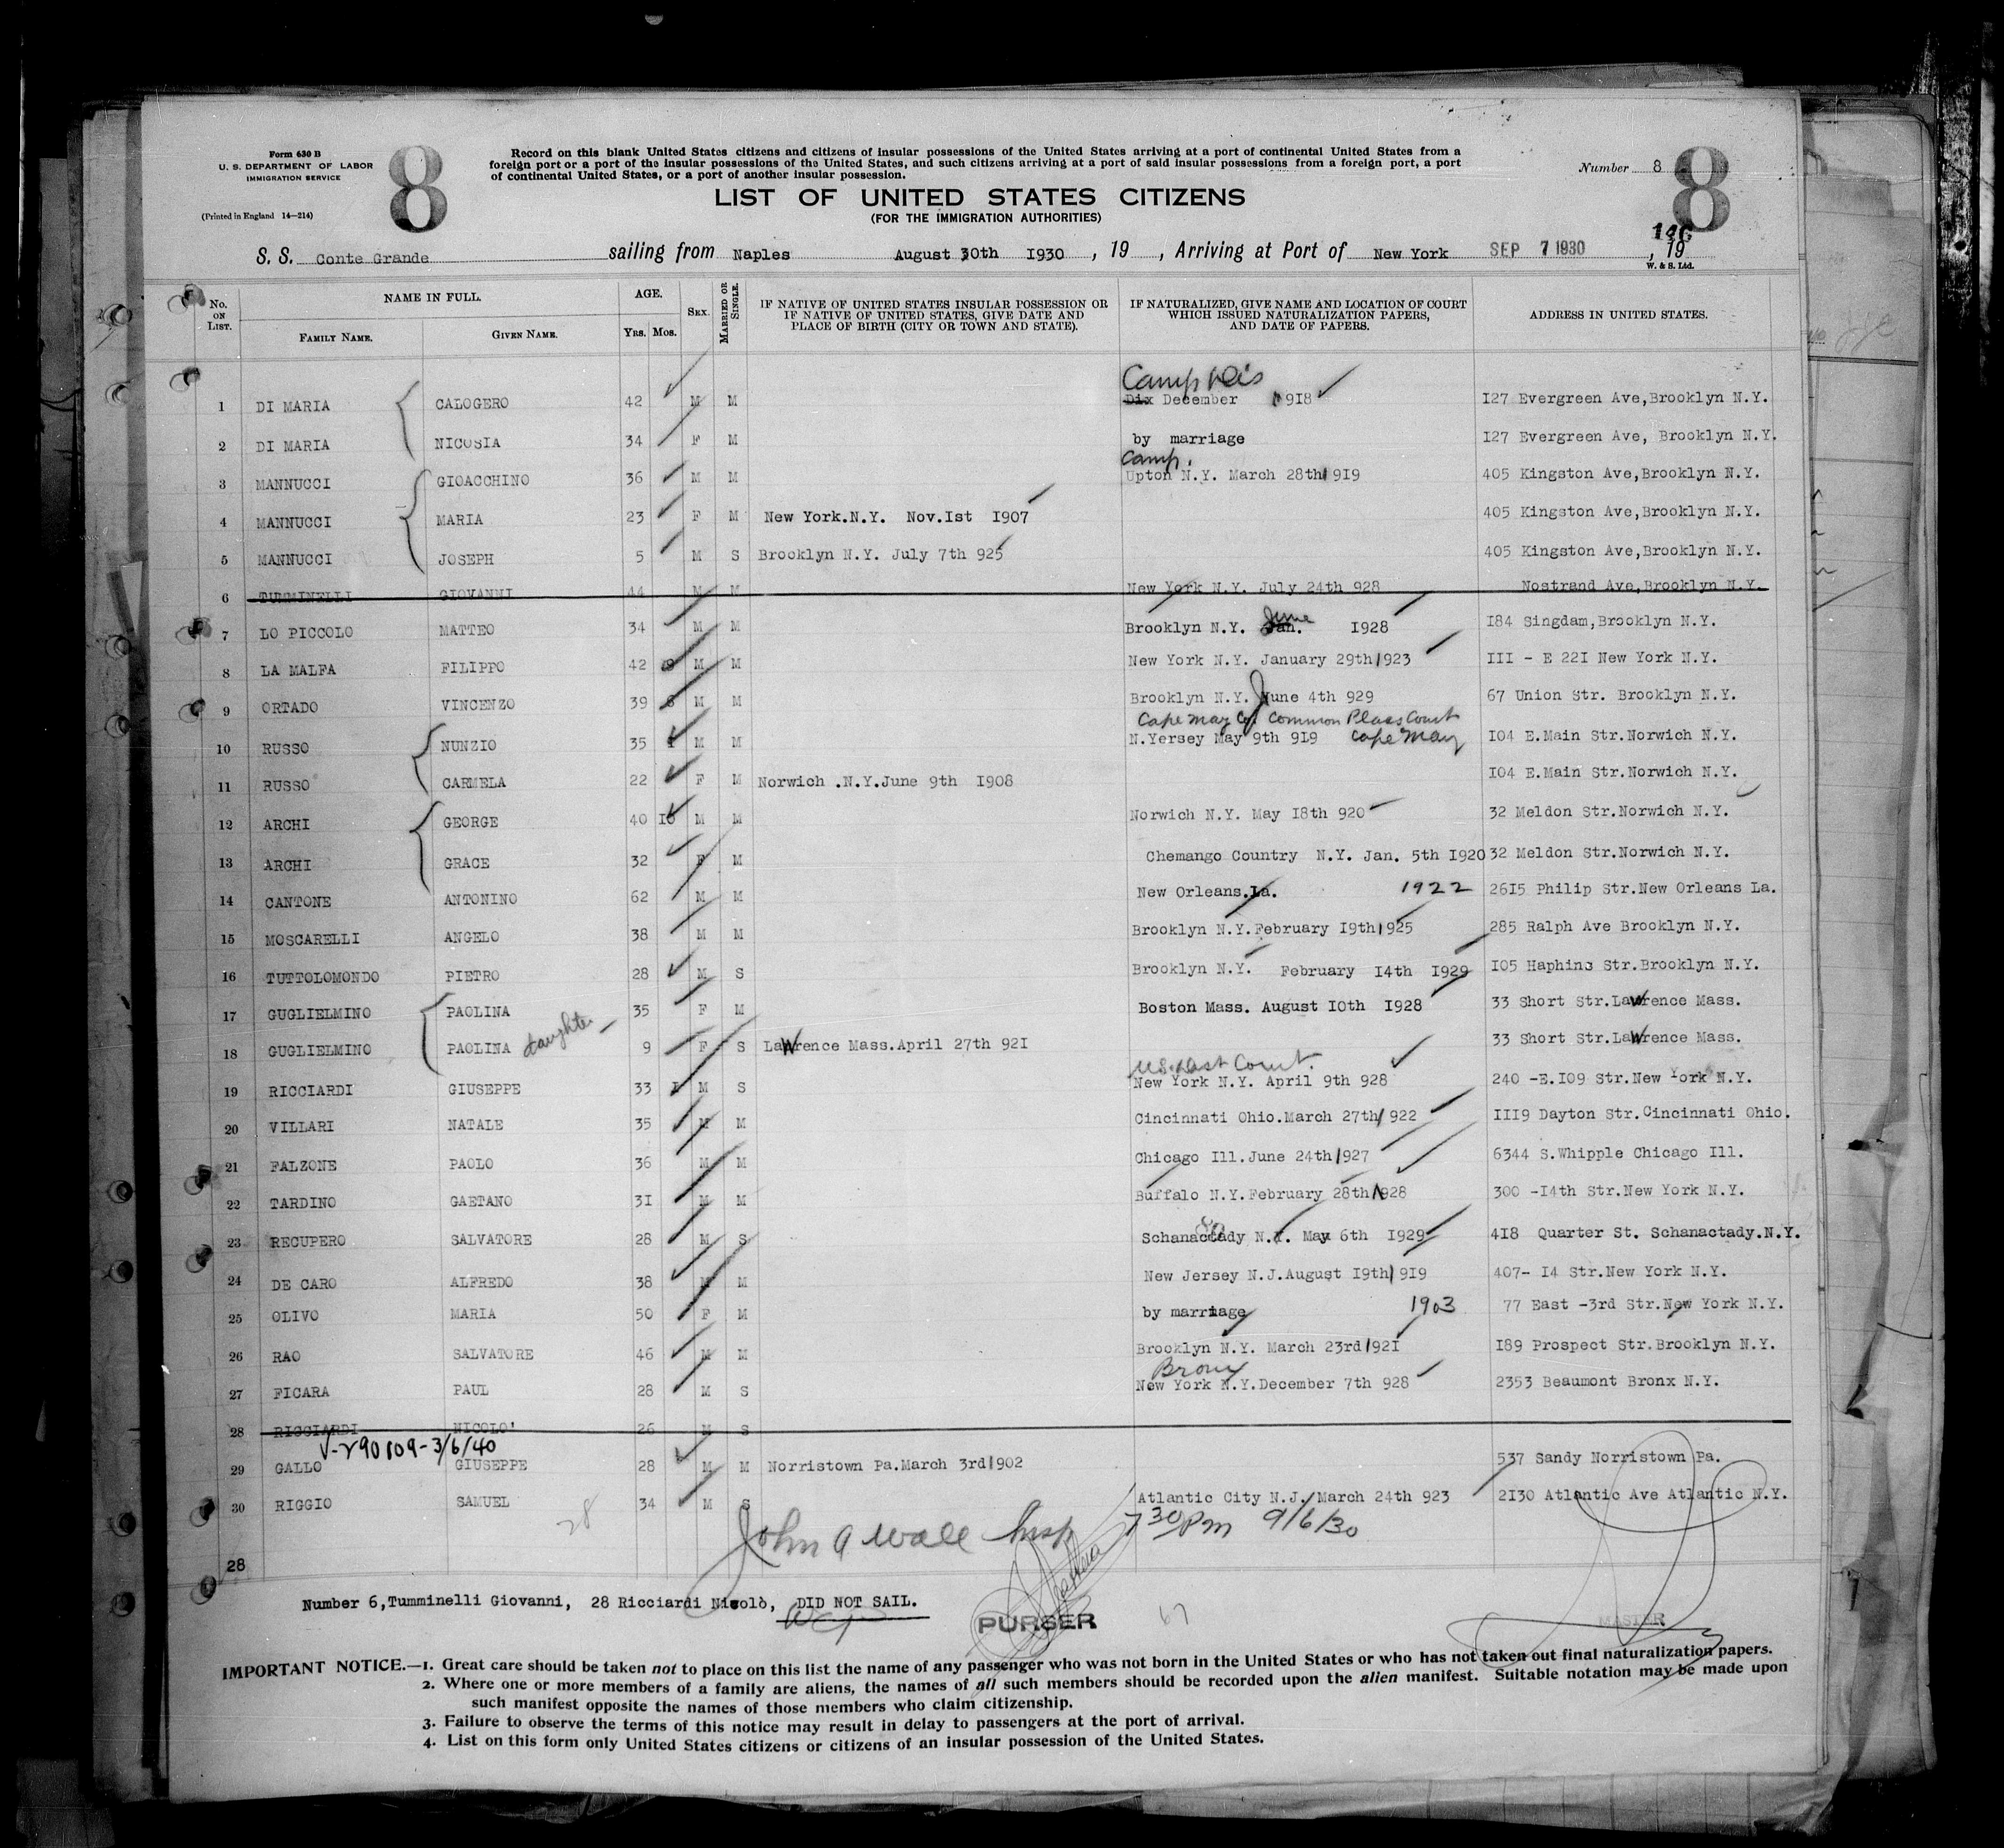 Form 630 B
U. S. DEPARTMENT OF LABOR
IMMIGRATION SERVICE
(Printed in England 14—214)
8
Record on this blank United States citizens and citizens of insular possessions of the United States arriving at a port of continental United States from a
foreign port or a port of the insular possessions of the United States, and such citizens arriving at a port of said insular possessions from a foreign port, a port
of continental United States, or a port of another insular possession.
Number 8
8
LIST OF UNITED STATES CITIZENS
(FOR THE IMMIGRATION AUTHORITIES)
146
S. S. Conte Grande sailing from Naples August 30th 1930 , 19 , Arriving at Port of New York SEP 7 1930 , 19
W. & S. Ltd.
No. ON LIST. NAME IN FULL. FAMILY NAME. GIVEN NAME. AGE. YRS. MOS. SEX. MARRIED OR SINGLE. IF NATIVE OF UNITED STATES INSULAR POSSESSION OR IF NATIVE OF UNITED STATES, GIVE DATE AND PLACE OF BIRTH (CITY OR TOWN AND STATE). IF NATURALIZED, GIVE NAME AND LOCATION OF COURT WHICH ISSUED NATURALIZATION PAPERS, AND DATE OF PAPERS. ADDRESS IN UNITED STATES.
Camp Dix
1 DI MARIA CALOGERO 42 M M Dix December 1918 127 Evergreen Ave,Brooklyn N.Y.
2 DI MARIA NICOSIA 34 F M by marriage 127 Evergreen Ave, Brooklyn N.Y.
Camp.
3 MANNUCCI GIOACCHINO 36 M M Upton N.Y. March 28th 1919 405 Kingston Ave,Brooklyn N.Y.
4 MANNUCCI MARIA 23 F M New York.N.Y. Nov.1st 1907 405 Kingston Ave,Brooklyn N.Y.
5 MANNUCCI JOSEPH 5 M S Brooklyn N.Y. July 7th 925 405 Kingston Ave,Brooklyn N.Y.
6 TUMMINELLI GIOVANNI 44 M M New York N.Y. July 24th 928 Nostrand Ave,Brooklyn N.Y.
7 LO PICCOLO MATTEO 34 M M Brooklyn N.Y. Jan. June 1928 184 Singdam,Brooklyn N.Y.
8 LA MALFA FILIPPO 42 9 M M New York N.Y. January 29th/923 III - E 221 New York N.Y.
9 ORTADO VINCENZO 39 8 M M Brooklyn N.Y. June 4th 929 67 Union Str. Brooklyn N.Y.
Cape May Co. Common Pleas Court
10 RUSSO NUNZIO 35 M M N.Yersey May 9th 919 Cape May 104 E.Main Str.Norwich N.Y.
11 RUSSO CARMELA 22 F M Norwich .N.Y.June 9th 1908 104 E.Main Str.Norwich N.Y.
12 ARCHI GEORGE 40 10 M M Norwich N.Y. May 18th 920 32 Meldon Str.Norwich N.Y.
13 ARCHI GRACE 32 F M Chemango Country N.Y. Jan. 5th 1920 32 Meldon Str.Norwich N.Y.
14 CANTONE ANTONINO 62 M M New Orleans.La. 1922 2615 Philip Str.New Orleans La.
15 MOSCARELLI ANGELO 38 M M Brooklyn N.Y.February 19th/925 285 Ralph Ave Brooklyn N.Y.
16 TUTTOLOMONDO PIETRO 28 M S Brooklyn N.Y. February 14th 1929 105 Haphins Str.Brooklyn N.Y.
17 GUGLIELMINO PAOLINA 35 F M Boston Mass. August 10th 1928 33 Short Str.Lawrence Mass.
18 GUGLIELMINO PAOLINA daughter 9 F S Lawrence Mass.April 27th 921 33 Short Str.Lawrence Mass.
U.S. Dist Court.
19 RICCIARDI GIUSEPPE 33 M S New York N.Y. April 9th 928 240 -E.109 Str.New York N.Y.
20 VILLARI NATALE 35 M M Cincinnati Ohio.March 27th/922 1119 Dayton Str.Cincinnati Ohio.
21 FALZONE PAOLO 36 M M Chicago Ill.June 24th/927 6344 S.Whipple Chicago Ill.
22 TARDINO GAETANO 31 M M Buffalo N.Y.February 28th/1928 300 -14th Str.New York N.Y.
23 RECUPERO SALVATORE 28 M S Schanactady N.Y. May 6th 1929 418 Quarter St. Schanactady.N.Y.
24 DE CARO ALFREDO 38 M M New Jersey N.J.August 19th/919 407- 14 Str.New York N.Y.
25 OLIVO MARIA 50 F M by marriage 1903 77 East -3rd Str.New York N.Y.
26 RAO SALVATORE 46 M M Brooklyn N.Y. March 23rd/921 189 Prospect Str.Brooklyn N.Y.
Bronx
27 FICARA PAUL 28 M S New York N.Y.December 7th 928 2353 Beaumont Bronx N.Y.
28 RICCIARDI NICOLO' 26 M S
V-290109-3/6/40
29 GALLO GIUSEPPE 28 M M Norristown Pa.March 3rd/902 537 Sandy Norristown Pa.
30 RIGGIO SAMUEL 34 M S Atlantic City N.J. March 24th 923 2130 Atlantic Ave Atlantic N.Y.
28
John A Wall Insp 7 30 PM 9/6/30
28
Number 6,Tumminelli Giovanni, 28 Ricciardi Nicolò, DID NOT SAIL.
PURSER
67
MASTER
IMPORTANT NOTICE.—1. Great care should be taken not to place on this list the name of any passenger who was not born in the United States or who has not taken out final naturalization papers.
2. Where one or more members of a family are aliens, the names of all such members should be recorded upon the alien manifest. Suitable notation may be made upon
such manifest opposite the names of those members who claim citizenship.
3. Failure to observe the terms of this notice may result in delay to passengers at the port of arrival.
4. List on this form only United States citizens or citizens of an insular possession of the United States.